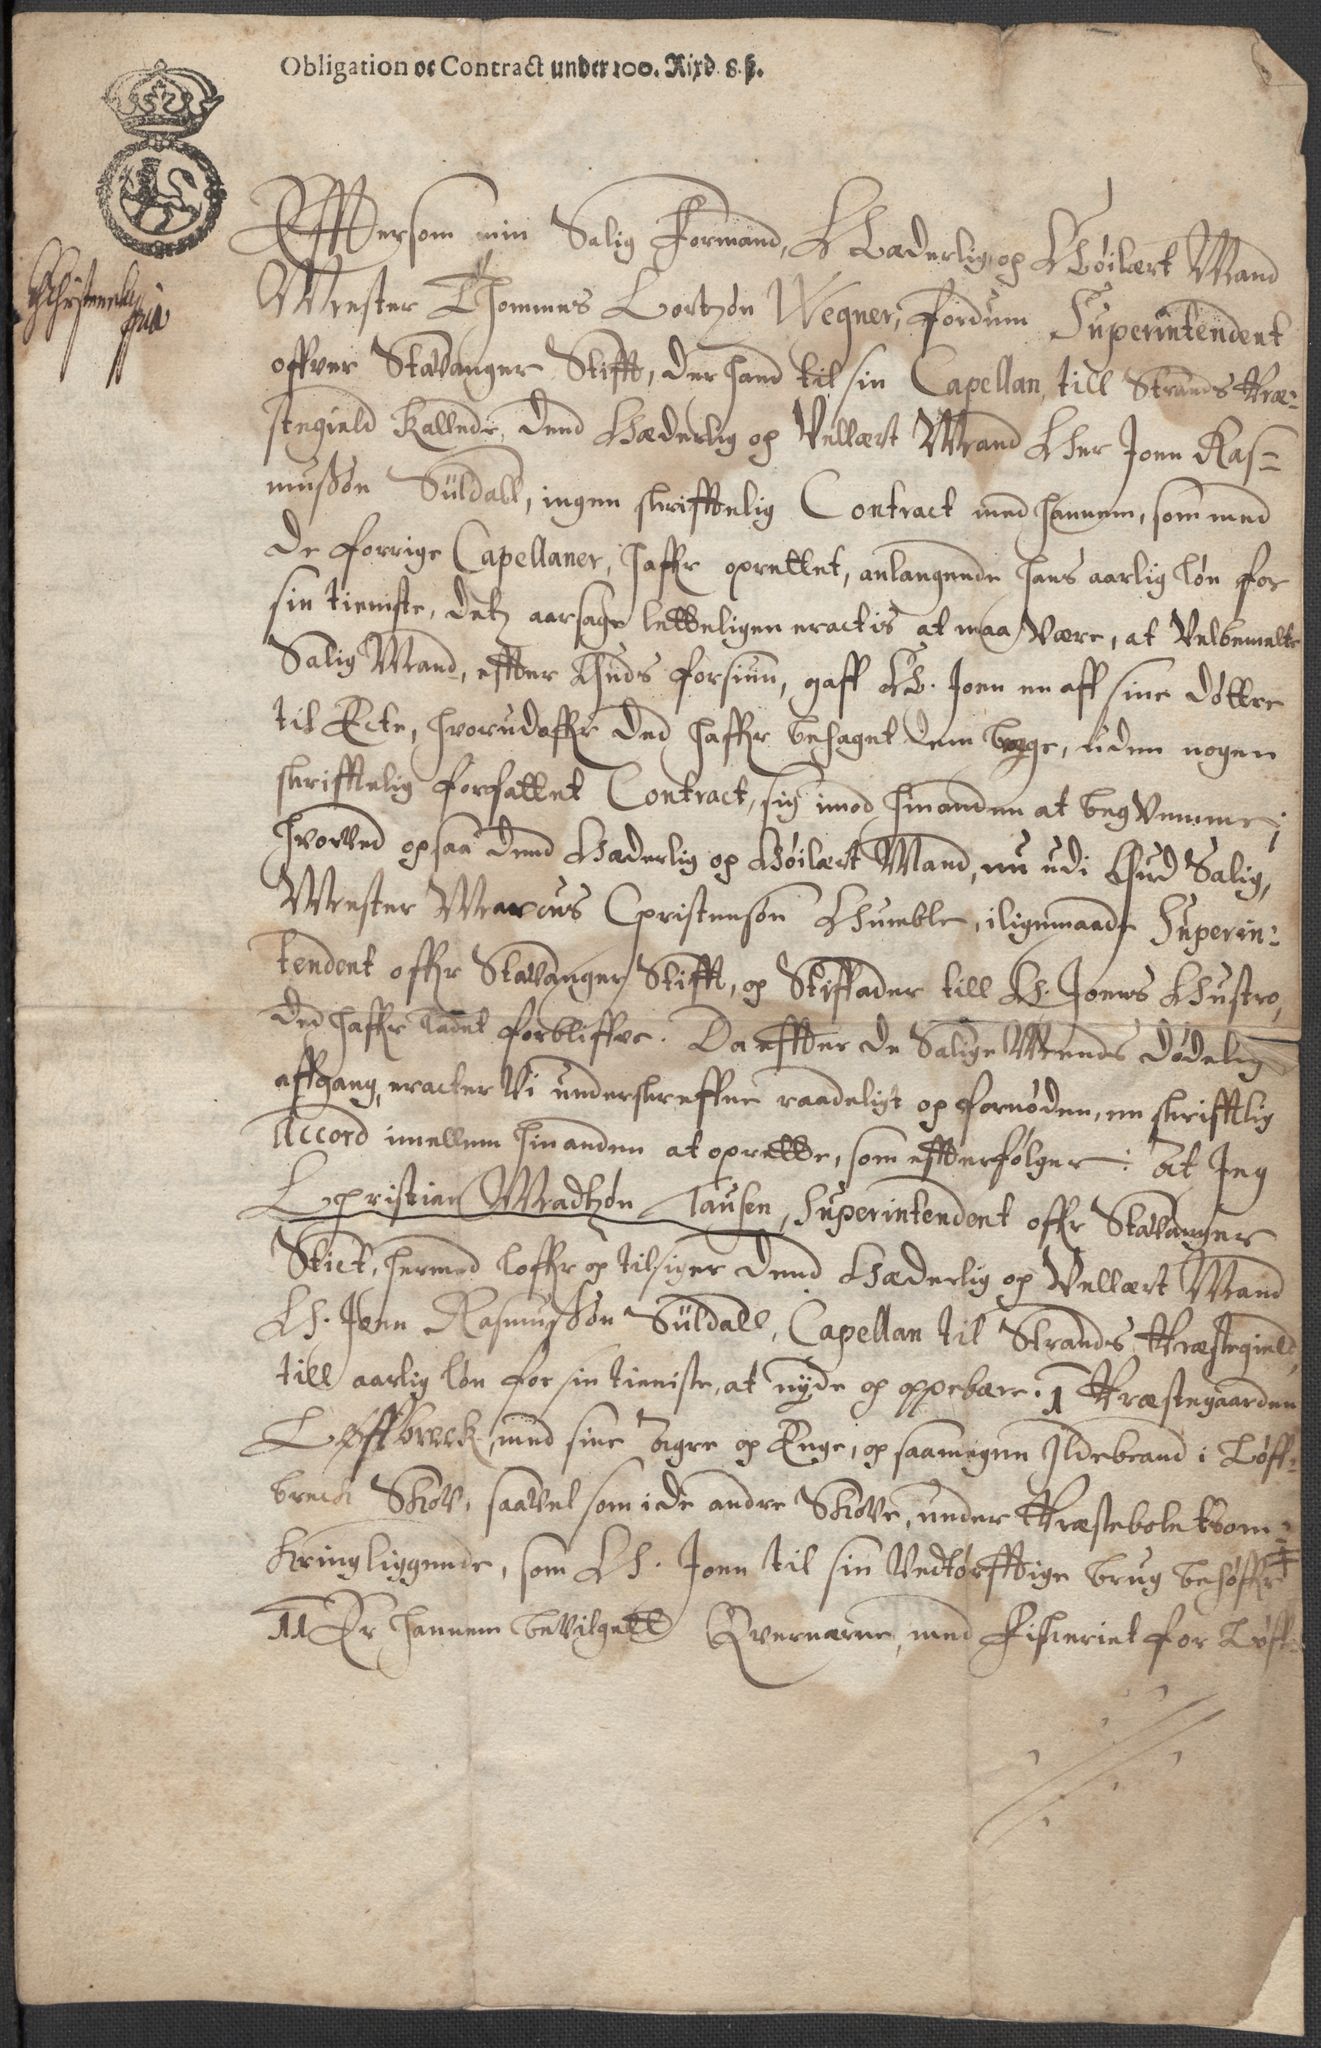 Obligation oc Contract under 100. Rixd. 8. ß.
Effttersom min Salig Formand, Hæderlig og Høilært Mand
Mester Thommes Cortzøn Wegner, Fordum Superintendent
offver Stavanger Stifft, der hand til sin Capellan till Strands Præ-
stegield kallede, Dend Hæderlig og Vellært Mand Her Joen Ras-
mußøn Süldall, ingen skrifftelig Contract med hannem, som med
de forrige Capellaner, haffr oprettet, anlangende hans aarlig løn for
sin tieniste, detz aarsage letteligen eractis at maa være, at Velbemelte
Salig Mand, effter Guds forsiun, gaff H. Joen en aff sine døttre
til Ecte, hvorudoffr ded haffr behaget dem begge, uden nogen
skrifftelig forfattet Contract, sig imod hinanden at beqvemme;
hvorved ogsaa dend Hæderlig og Høilært Mand, nu udi Gud Salig,
Mester Marcus Christensøn Humble, iligemaade Superin-
tendent offr Stavanger Stifft, og Stiffader till H. Joens Hustro,
ded haffr ladet forbliffve. Da effter de Salige Mends dødelig
affgang, eracter Vi underskreffne raadeligt og fornøden, en skrifftlig
Accord imellem hinanden at oprette, som effterfølger: At Jeg
Christian Madtzøn Tausen, Superintendent offr Stavanger
Stict, hermed loffr og tilsiger Dend Hæderlig og Vellært Mand
H. Joen Rasmußøn Süldall, Capellan til Strands Præstegield,
till aarlig løn for sin tieniste, at nyde og oppebære. 1 Præstegaarden
Løffbreck med sine Agre og Enge, og saamegen Ildebrand i Løff-
breck Skov, saavel som i de andre Skove, under Præstebolet om-
kringliggende, som H. Joen til sin Nedtørfftige brug behøffr
11 Er hannem bevilgett Qvernerne, med Fiskeriet for Løff-